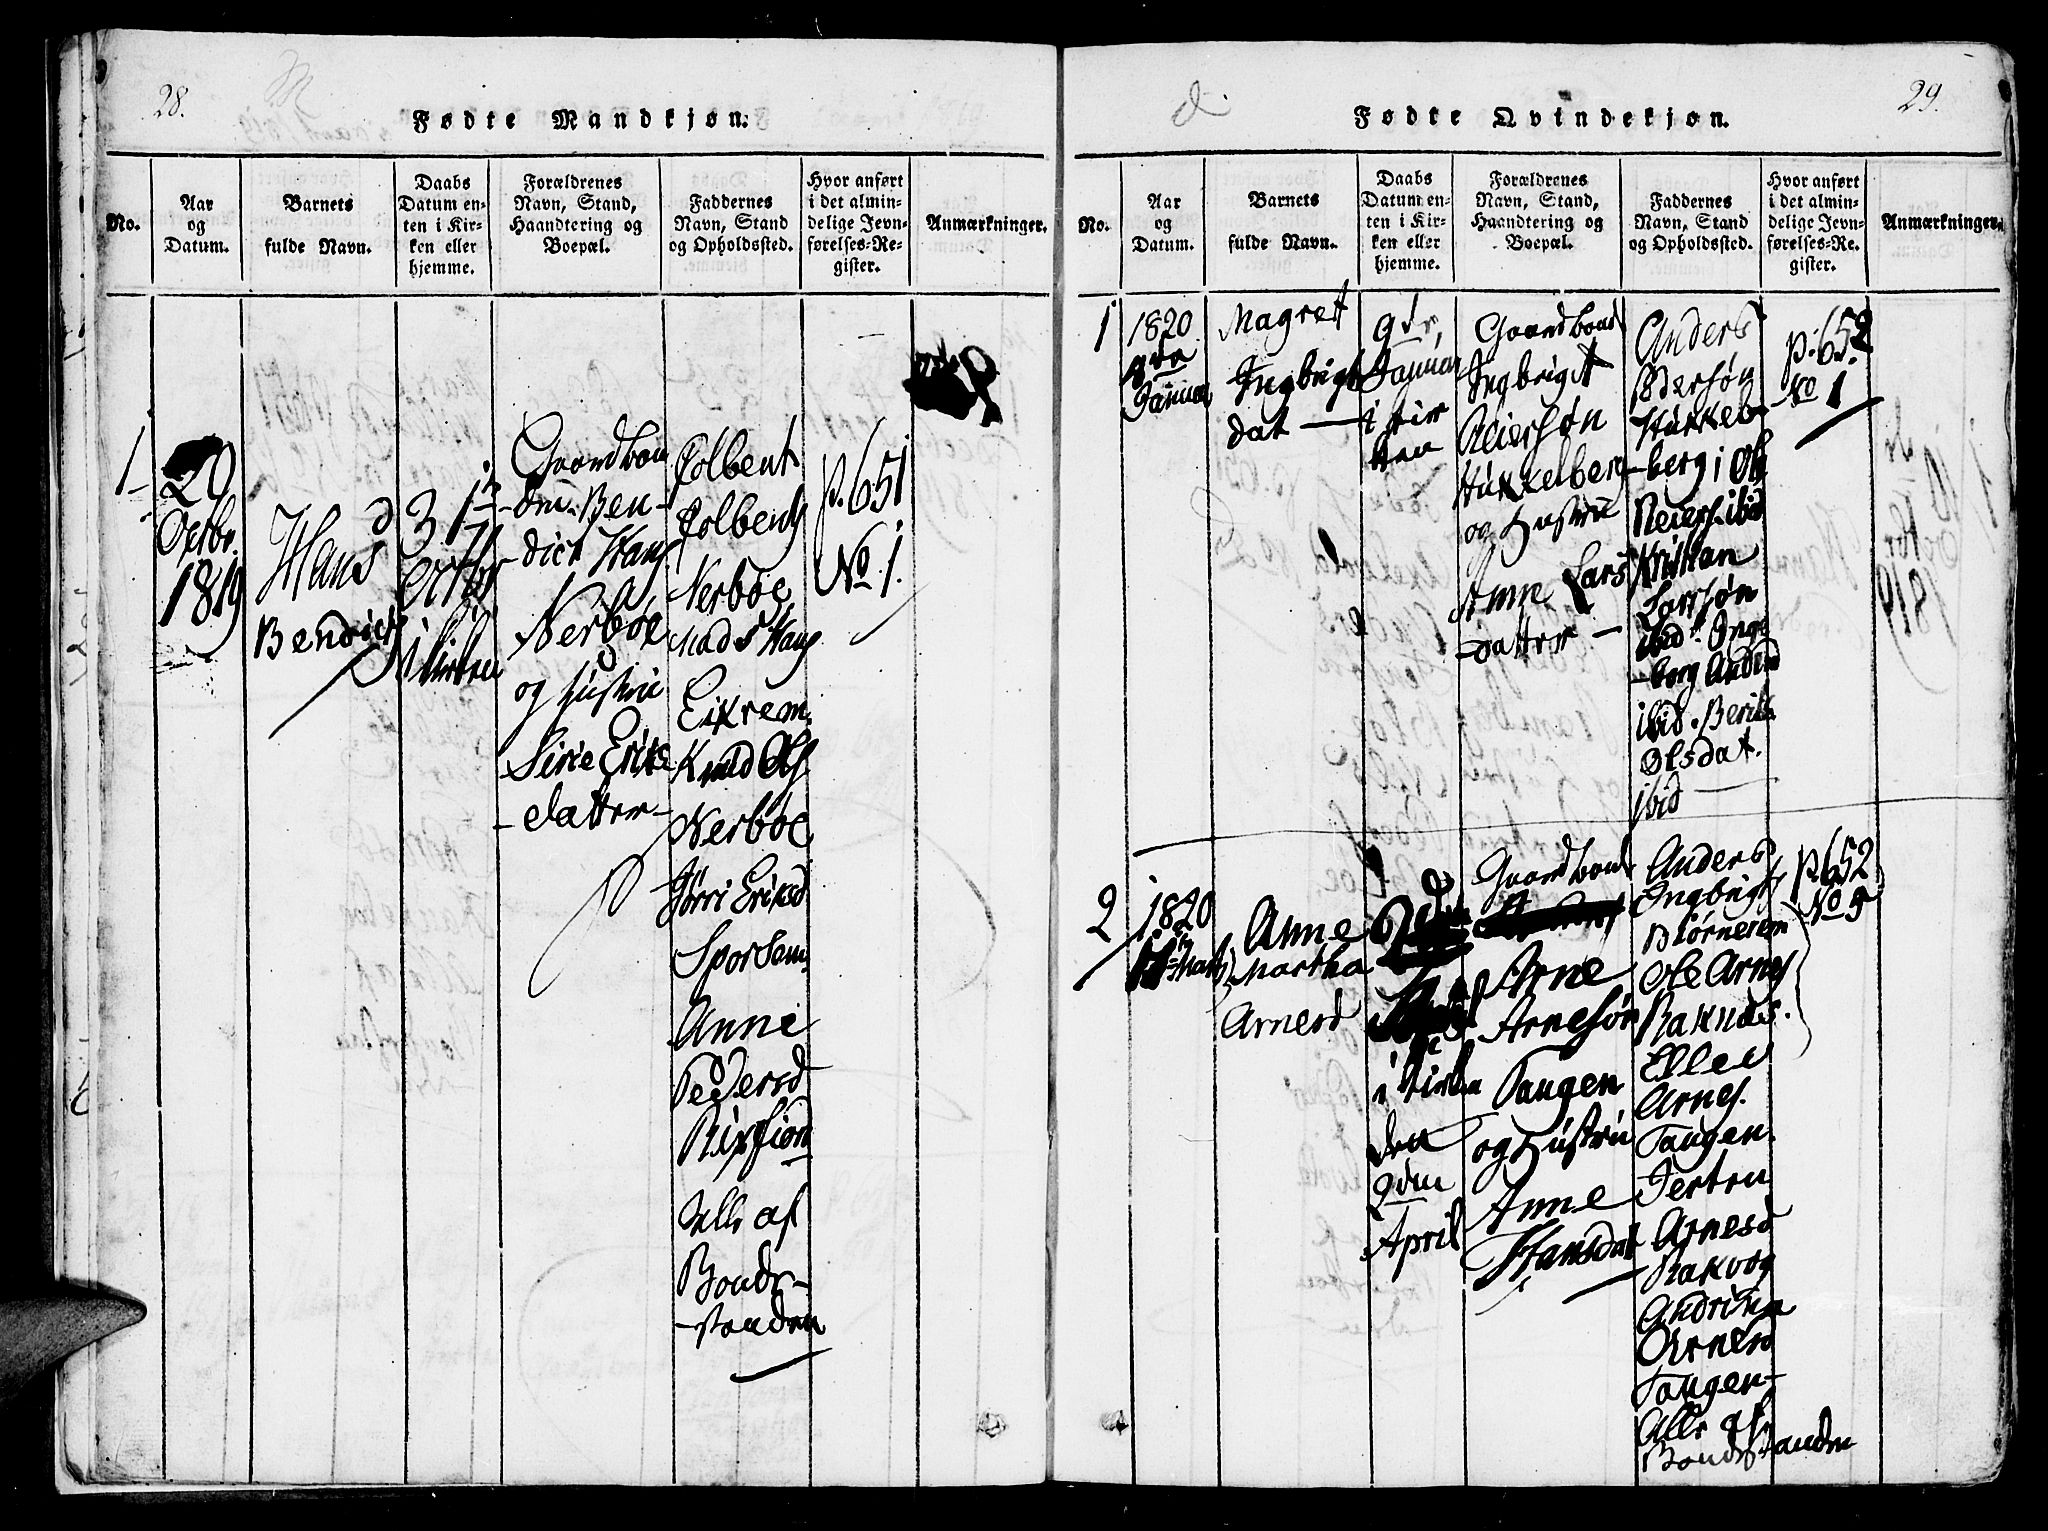 28.
Fødte Mandkjøn.
No.
Aar
og
Datum.
Barnets
fulde Navn.
Daabs
Datum en-
ten i Kir-
ken eller
hjemme.
Forældrenes
Navn, Stand,
Haandtering og
Boepæl.
Faddernes
Navn, Stand
og Opholdssted.
Hvor anført
i det almin-
delige Jevn-
førelses-Re-
gister.
Anmærkninger.
1
20
Octbr.
1819
Hans
Bendicts
31
octbr
i Kirken
Gaardbon
den Ben-
dict Hans
Nerbøe
og Hustrue
Siri Eriks
-datter-
Colbent
Colbens
Nerbøe
Mads Hans
Eikrem.
Knud Ols
Nerbøe
Jørri Eriksd
Sporsem
Anne
Pedersd
Rixfiord
Alle af
Bonde-
-standen
p. 651
No. 1.
29.
Fødte Qvindekjøn.
No.
Aar
og
Datum.
Barnets
fulde Navn.
Daabs
Datum en-
ten i Kir-
ken eller
hjemme.
Forældrenes
Navn, Stand,
Haandtering og
Boepæl.
Faddernes
Navn, Stand
og Opholdssted.
Hvor anført
i det almin-
delige Jevn-
førelses-Re-
gister.
Anmærkninger.
1
1820
8da
Januar
Magret
Ingbrigt
dat
9de
Januar
i Kir
ken
Gaardbond
Ingbrigt
Reiersøn
Hukkelberg
og Hustrue
Anne Lars
-datter-
Anders
Pedersøn
Hukkel-
-berg i Ole
Reiers. ibid
Kristian
Larssøn
ibid. Inge
-borg Andersd
ibid. Berith
Olsdat.
ibid
p. 652
No 1
2
1820
Marts
Anne
Martha
Arnesd
i Kirken
den
2den
April
Gaardbond
Arne
Arnesøn
Tangen
og Hustru
Anne
Hansdat
Anders
Ingbrigts
Biørnerem
Ole Arnes
Raknæs.
Ellev
Arnes.
Tangen.
Jertru
Arnesd
Rakvog
Andrina
Arnesd
Tangen-
Alle af
Bondestanden
p. 652
No